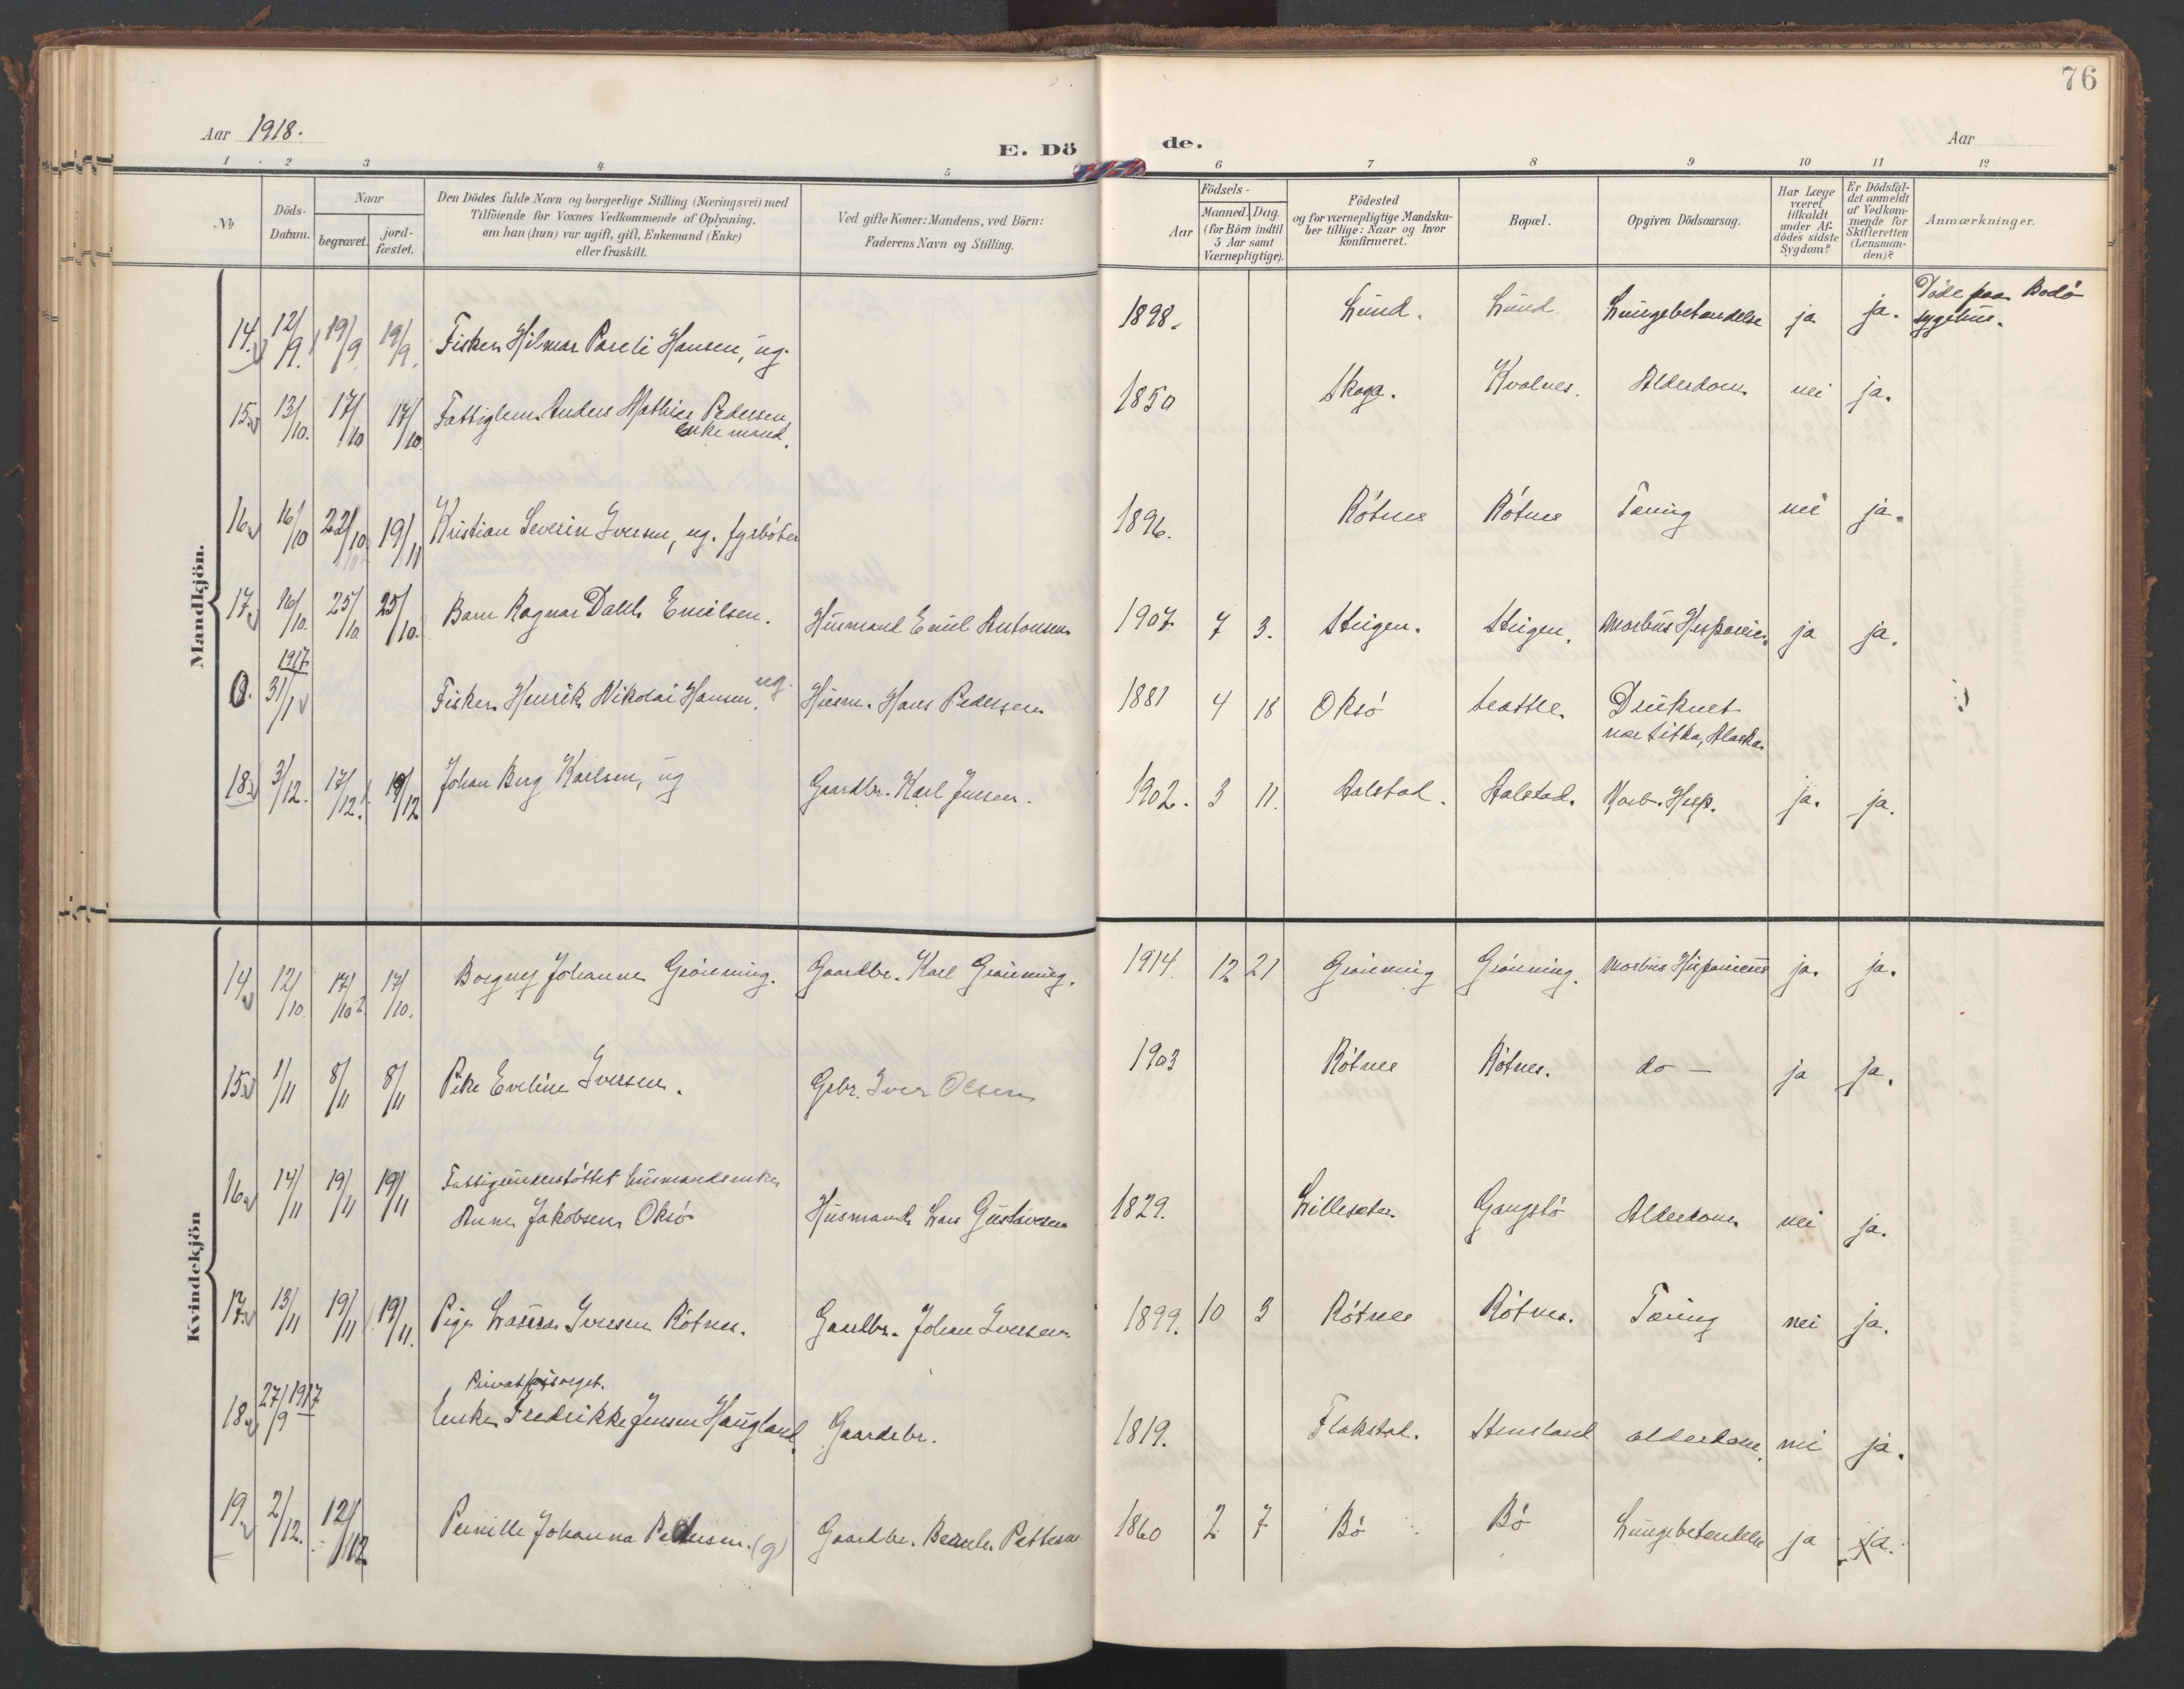 76
Aar 1918.
E. Dö
de.
Aar
1 2 3 4 5 6 7 8 9 10 11 12
№
Döds-
Datum.
Naar
begravet.
jord-
fæstet.
Den Dödes fulde Navn og borgerlige Stilling (Næringsvei) med
Tilföiende for Voxnes Vedkommende af Oplysning,
om han (hun) var ugift, gift, Enkemand (Enke)
eller fraskilt.
Ved gifte Koner: Mandens, ved Börn:
Faderens Navn og Stilling.
Födsels-
Aar
Maaned. Dag.
(for Börn indtil
5 Aar samt
Værnepligtige).
Födested
og for værnepligtige Mandska-
ber tillige: Naar og hvor
Konfirmeret.
Bopæl.
Opgiven Dödsaarsag.
Har Læge
været
tilkaldt
under Af-
dödes sidste
Sygdom?
Er Dödsfal-
det anmeldt
af Vedkom-
mende for
Skifteretten
(Lensman-
den)?
Anmærkninger.
Mandkjön.
14. 12/9. 19/9. 19/9. Fisker Hilmar Pareli Hansen, ug. 1898. Lund. Lund Lungebetændelse ja ja. Döde paa Bodö
sygehus.
15. 13/10. 17/10 17/10. Fattiglem Anders Mathias Pedersen,
enkemand. 1850 Skoga. Kvalnes. Alderdom nei ja.
16. 16/10 22/10. 19/11 Kristian Severin Iversen, ug. fyrböter 1896. Rötnes Rötnes Tæring nei ja.
17. 16/10. 25/10 25/10. Barn Ragnar Dahl Emilsen. Husmand Emil Antonsen 1907 7 3. Steigen. Steigen. Morbus Hispanic. ja ja.
0. 1917
31/1 Fisker Henrik Nikolai Hansen, ug. Husm. Hans Pedersen 1881 4 18 Oksö Seattle Druknet
nær Sitka, Alaska
18. 3/12. 17/12. 19/12 Johan Berg Karlsen, ug Gaardbr. Karl Jensen. 1902. 3 11. Aalstad. Aalstad. Morb. Hisp. ja. ja.
Kvindekjön
14. 12/10. 17/10 17/10. Borgny Johanne Gröinning. Gaardbr. Karl Gröinning. 1914. 12 21 Gröinning Gröinning. Morbus Hispanicus ja. ja.
15. 1/11 8/11 8/11 Pike Eveline Iversen. Grbr. Iver Olsen 1903 Rötnes Rötnes. do — ja ja.
16. 14/11 19/11 19/11 Fattigunderstöttet husmandsenke
Anne Jakobsen Oksö Husmand Lars Gustavsen 1829. Lillesæter Gangstö Alderdom nei ja.
17. 13/11 19/11 19/11. Pige Laura Iversen Rötnes. Gaardbr. Johan Iversen. 1899. 10 3 Rötnes Rötnes. Tæring nei ja.
18. 27/9 1917 Privat forsörget.
Enke Fredrikke Jensen Haugland Gaardbr. 1819. Flakstad. Stensland alderdom nei ja.
19. 2/12. 12/12 Pernille Johanna Pedersen. (g) Gaardbr. Bernt Pettersen 1860 2 7 Bö Bö Lungebetændelse ja ja.